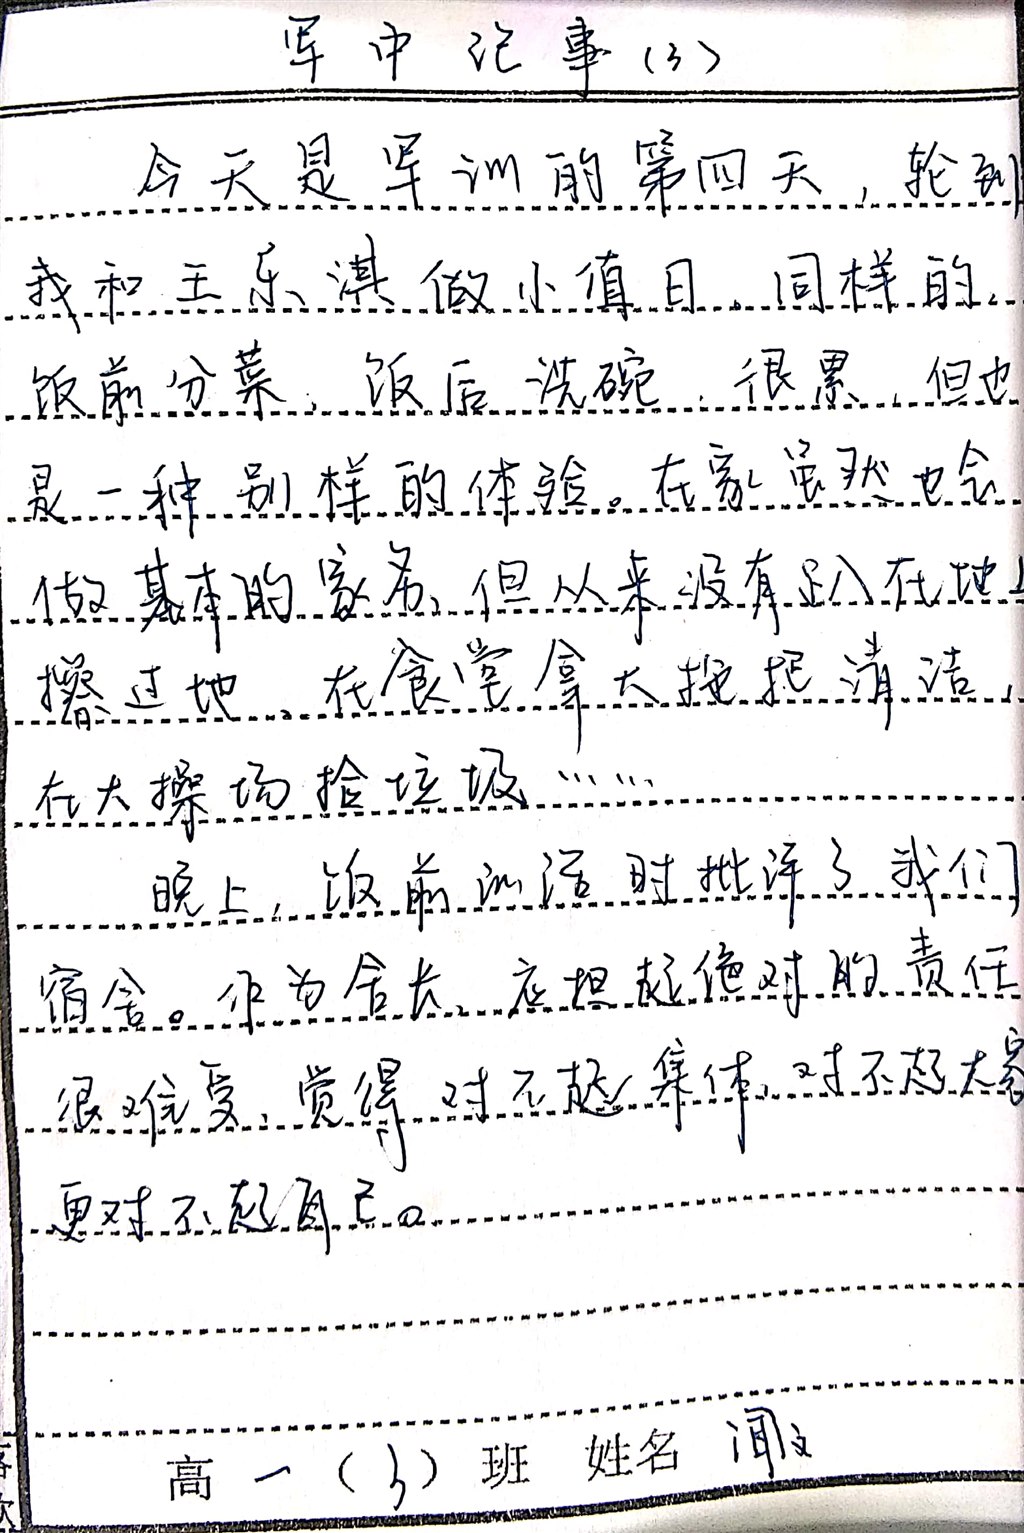 军中记事(3)
今天是军训的第四天，轮到
我和王东淇做小值日。同样的，
饭前分菜，饭后洗碗，很累，但也
是一种别样的体验。在家虽然也会
做基本的家务，但从来没有趴在地上
擦过地，在食堂拿大拖把清洁，
在大操场捡垃圾……
晚上，饭前训话时批评了我们
宿舍。作为舍长，应担起绝对的责任
很难受，觉得对不起集体，对不起大家
更对不起自己。
高一（3）班 姓名 闻文